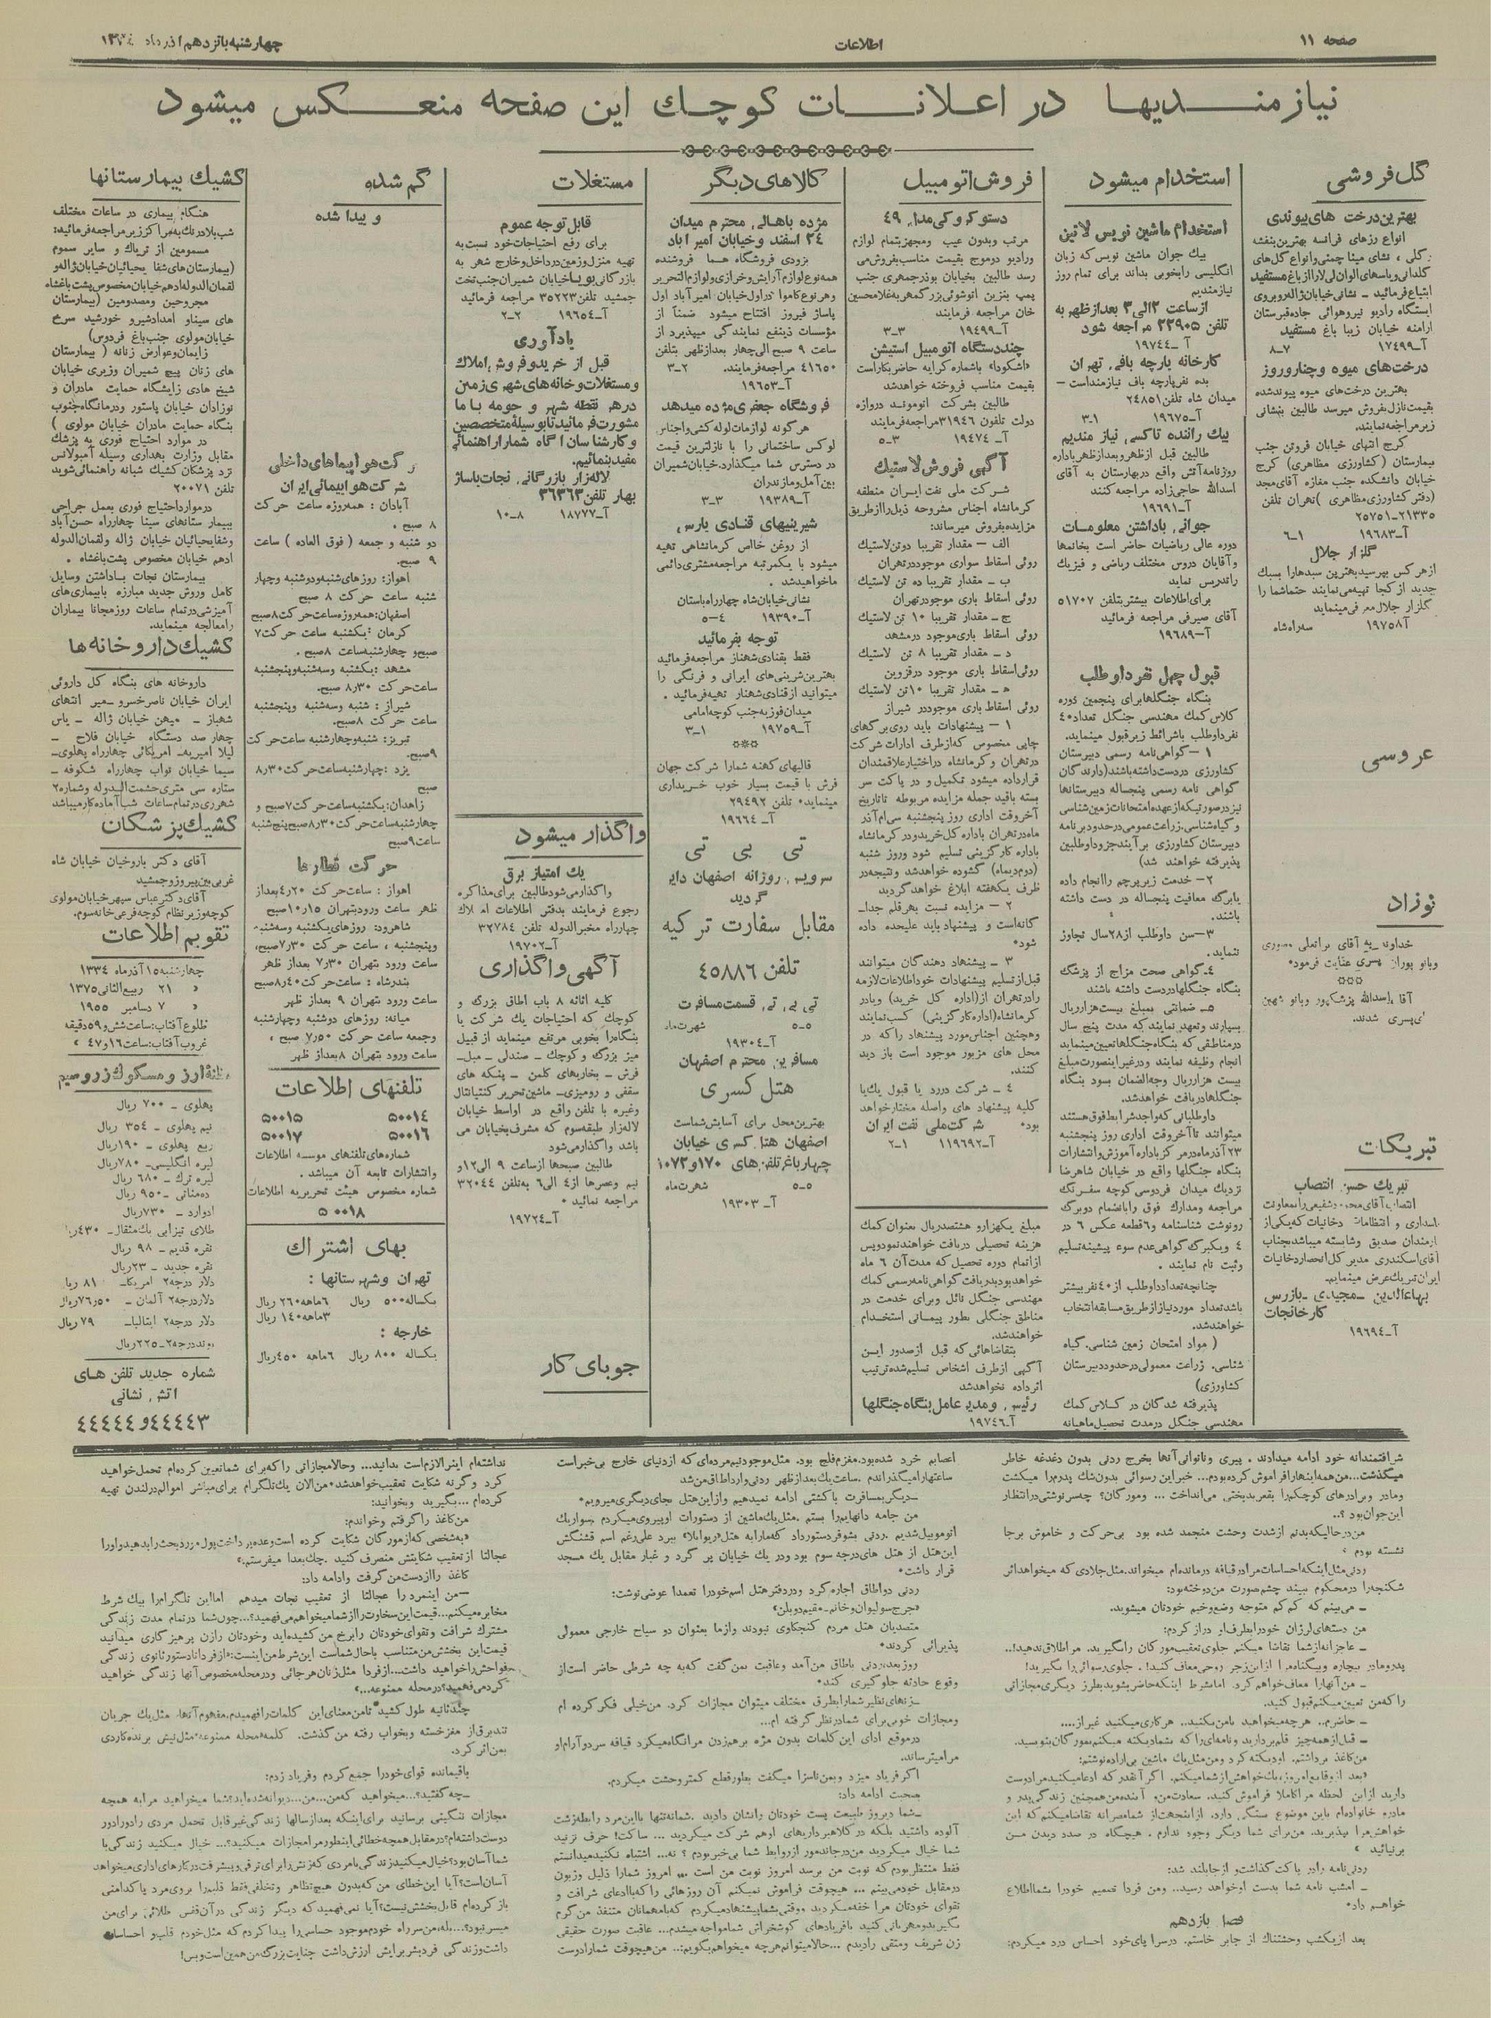 صفحه ۱۱
اطلاعات
چهارشنبه پانزدهم آذرماه ۱۳۳۴
نیازمندیها در اعلانات کوچك این صفحه منعکس میشود
گل فروشی
بهترین درخت های پیوندی
انواع رزهای فرانسه بهترین بنفشه
ابتیاع فرمائید - نشانی خیابان ژاله روبروی
ایستگاه رادیو نیروهوائی جاده قبرستان
ارامنه خیابان زیبا باغ مستفید
آ-۱۷۴۹۹ ۷-۸
درخت های میوه و چنار و روز
بهترین درخت های میوه پیوند شده
بقیمت نازل بفروش میرسد طالبین بنشانی
زیر مراجعه نمایند.
کرج انتهای خیابان فروتن جنب
بیمارستان (کشاورزی مظاهری) کرج
خیابان دانشکده جنب مغازه آقای مجد
(دفتر کشاورزی مظاهری) تهران تلفن
۲۱۳۳۵-۲۵۷۵۱
آ-۱۹۶۸۳ ۱-۶
گلزار جلال
از هر کس بپرسید بهترین سبدها را بسبك
جدید از کجا تهیه می نمایند حتما شما را
بگلزار جلال معرفی مینماید
آ-۱۹۷۵۸ سه راه شاه
عروسی
نوزاد
تبریکات
تبریك حسن انتصاب
آقای اسکندری مدیر کل انحصار دخانیات
ایران تبریك عرض مینمایم.
بهاءالدین - مجیدی - بازرس
کارخانجات
آ-۱۹۶۹۴
استخدام میشود
استخدام ماشین نویس لاتین
بیك جوان ماشین نویس که زبان
انگلیسی را بخوبی بداند برای تمام روز
نیازمندیم
از ساعت ۲ الی ۳ بعد از ظهر به
تلفن ۲۲۹۰۵ مراجعه شود
آ-۱۹۷۴۴
کارخانه پارچه بافی تهران
بده نفر پارچه باف نیازمند است -
میدان شاه تلفن ۲۴۸۵۱
آ-۱۹۶۷۵ ۱-۳
بیك راننده تاکسی نیازمندیم
طالبین قبل از ظهر و بعد از ظهر باداره
روزنامه آتش واقع در بهارستان به آقای
اسدالله حاجی زاده مراجعه کنند
آ-۱۹۶۹۱
جوانی باداشتن معلومات
دوره عالی ریاضیات حاضر است بخانمها
و آقایان دروس مختلف ریاضی و فیزیك
را تدریس نماید
برای اطلاعات بیشتر بتلفن ۵۱۷۰۷
آقای صیرفی مراجعه فرمائید
آ-۱۹۶۸۹
قبول چهل نفر داوطلب
بنگاه جنگلها برای پنجمین دوره
کلاس کمك مهندسی جنگل تعداد ۴۰
نفر داوطلب با شرائط زیر قبول مینماید.
۱ - گواهی نامه رسمی دبیرستان
کشاورزی در دست داشته باشند (دارندگان
گواهی نامه رسمی پنجساله دبیرستانها
نیز در صورتیکه از عهده امتحانات زمین شناسی
و گیاه شناسی. زراعت عمومی در حدود برنامه
دبیرستان کشاورزی برآیند جزو داوطلبین
پذیرفته خواهند شد)
۲- خدمت زیر پرچم را انجام داده
یا برگ معافیت پنجساله در دست داشته
باشند.
۳-سن داوطلب از ۲۸ سال تجاوز
ننماید.
۴-گواهی صحت مزاج از پزشك
بنگاه جنگلها در دست داشته باشند
۵- ضمانتی بمبلغ بیست هزار ریال
بسپارند و تعهد نمایند که مدت پنج سال
در مناطقی که بنگاه جنگلها تعیین مینماید
انجام وظیفه نمایند و در غیر اینصورت مبلغ
بیست هزار ریال وجه الضمان بسود بنگاه
جنگلها دریافت خواهد شد.
داوطلبانی که واجد شرایط فوق هستند
میتوانند تا آخر وقت اداری روز پنجشنبه
۲۳ آذرماه در مرکز باداره آموزش و انتشارات
بنگاه جنگلها واقع در خیابان شاهرضا
نزدیك میدان فردوسی کوچه سفرنگ
مراجعه و مدارك فوق را بانضمام دو برگ
رونوشت شناسنامه و ۶ قطعه عکس ۶ در
۴ و یکبرگ گواهی عدم سوء پیشینه تسلیم
و ثبت نام نمایند.
چنانچه تعداد داوطلب از ۴۰ نفر بیشتر
باشد تعداد مورد نیاز از طریق مسابقه انتخاب
خواهند شد.
(مواد امتحان زمین شناسی. گیاه
شناسی. زراعت معمولی در حدود دبیرستان
کشاورزی)
پذیرفته شدگان در کلاس کمك
مهندسی جنگل در مدت تحصیل ماهیانه
فروش اتومبیل
دستوکروکی مدل ۴۹
مرتب و بدون عیب و مجهز بتمام لوازم
و رادیو دوموج بقیمت مناسب بفروش می
رسد طالبین بخیابان بوذرجمهری جنب
پمپ بنزین اتوشوئی بزرگمهر بغلامحسین
خان مراجعه فرمایند
آ-۱۹۴۹۹ ۳-۳
چند دستگاه اتومبیل استیشن
«اشکودا» با شماره کرایه حاضر بکار است
بقیمت مناسب فروخته خواهد شد
طالبین بشرکت اتوموند دروازه
دولت تلفون ۳۱۹۴۶ مراجعه فرمایند
آ-۱۹۴۷۴ ۳-۵
آگهی فروش لاستیك
شرکت ملی نفت ایران منطقه
کرمانشاه اجناس مشروحه ذیل را از طریق
مزایده بفروش میرساند:
الف - مقدار تقریبا دو تن لاستیك
روئی اسقاط سواری موجود در تهران
ب - مقدار تقریبا ده تن لاستیك
روئی اسقاط باری موجود در تهران
ج - مقدار تقریبا ۱۰ تن لاستیك
روئی اسقاط باری موجود در مشهد
د - مقدار تقریبا ۸ تن لاستیك
روئی اسقاط باری موجود در قزوین
ه - مقدار تقریبا ۱۰ تن لاستیك
روئی اسقاط باری موجود در شیراز
۱ - پیشنهادات باید روی برگهای
چاپی مخصوص که از طرف ادارات شرکت
در تهران و کرمانشاه در اختیار علاقمندان
قرار داده میشود تکمیل و در پاکت سر
بسته باقید جمله مزایده مربوطه تا تاریخ
آخر وقت اداری روز پنجشنبه سی ام آذر
ماه در تهران باداره کل خرید و در کرمانشاه
باداره کارگزینی تسلیم شود و روز شنبه
(دوم دیماه) گشوده خواهد شد و نتیجه در
ظرف یکهفته ابلاغ خواهد گردید
۲ - مزایده نسبت بهر قلم جدا-
گانه است و پیشنهاد باید علیحده داده
شود.
۳ - پیشنهاد دهندگان میتوانند
قبل از تسلیم پیشنهادات خود اطلاعات لازمه
را در تهران از (اداره کل خرید) و یا در
کرمانشاه (اداره کارگزینی) کسب نمایند
و همچنین اجناس مورد پیشنهاد را که در
محل های مزبور موجود است باز دید
کنند
۴ - شرکت در رد یا قبول یك یا
کلیه پیشنهاد های واصله مختار خواهد
بود. شرکت ملی نفت ایران
آ-۱۱۹۶۹۲ ۱-۲
مبلغ یکهزار و هشتصد ریال بعنوان کمك
هزینه تحصیلی دریافت خواهند نمود و پس
از اتمام دوره تحصیل که مدت آن ۶ ماه
خواهد بود بدریافت گواهی نامه رسمی کمك
مهندسی جنگل نائل و برای خدمت در
مناطق جنگلی بطور پیمانی استخدام
خواهند شد.
بتقاضاهائی که قبل از صدور این
آگهی از طرف اشخاص تسلیم شده ترتیب
اثر داده نخواهد شد
رئیس و مدیر عامل بنگاه جنگلها
آ-۱۹۷۴۶
کالاهای دیگر
مژده باهالی محترم میدان
۲۴ اسفند و خیابان امیرآباد
بزودی فروشگاه هما فروشنده
همه نوع لوازم آرایش و خرازی و لوازم التحریر
و هر نوع کاموا در اول خیابان امیرآباد اول
پاساژ فیروز افتتاح میشود ضمناً از
مؤسسات ذینفع نمایندگی میپذیرد از
ساعت ۹ صبح الی چهار بعد از ظهر بتلفن
۴۱۶۵۰ مراجعه فرمایند. ۲-۳
آ-۱۹۶۵۳
فروشگاه جعفری مژده میدهد
هر گونه لوازمات لوله کشی و اجناس
لوکس ساختمانی را با نازلترین قیمت
در دسترس شما میگذارد. خیابان شمیران
بین آمل و مازندران
آ-۱۹۳۸۹ ۳-۳
شیرینیهای قنادی پارس
از روغن خالص کرمانشاهی تهیه
میشود با یکمرتبه مراجعه مشتری دائمی
ما خواهید شد.
نشانی خیابان شاه چهار راه باستان
آ-۱۹۳۹۰ ۴-۵
توجه بفرمائید
فقط بقنادی شهناز مراجعه فرمائید
بهترین شیرینی های ایرانی و فرنگی را
میتوانید از قنادی شهناز تهیه فرمائید.
میدان فوزیه جنب کوچه امامی
آ-۱۹۷۵۹ ۱-۳
***
قالیهای کهنه شما را شرکت جهان
فرش با قیمت بسیار خوب خریداری
مینماید. تلفن ۲۹۴۹۲
آ-۱۹۶۶۴
تی بی تی
سرویس روزانه اصفهان دایر
گردید
مقابل سفارت ترکیه
تلفن ۴۵۸۸۶
تی بی تی قسمت مسافرت
۵-۵ شهرت ماه
آ-۱۹۳۰۴
مسافرین محترم اصفهان
هتل کسری
بهترین محل برای آسایش شماست
اصفهان هتل کسری خیابان
چهارباغ تلفن های ۱۷۰ و ۱۰۷۳
۵-۵ شهرت ماه
آ-۱۹۳۰۳
مستغلات
قابل توجه عموم
برای رفع احتیاجات خود نسبت به
تهیه منزل و زمین در داخل و خارج شهر به
بازرگانی پویا خیابان شمیران جنب تخت
جمشید تلفن ۳۵۲۲۳ مراجعه فرمائید
آ-۱۹۶۵۴ ۲-۲
یادآوری
قبل از خرید و فروش املاك
و مستغلات و خانه های شهری زمین
در هر نقطه شهر و حومه با ما
مشورت فرمائید تا بوسیلۀ متخصصین
و کارشناسان آگاه شما را راهنمائی
مفید بنمائیم.
لاله زار بازرگانی نجات پاساژ
بهار تلفن ۳۶۳۶۳
آ-۱۸۷۷۷ ۸-۱۰
واگذار میشود
یك امتیاز برق
واگذار می شود طالبین برای مذاکره
رجوع فرمایند بدفتر اطلاعات املاك
چهارراه مخبرالدوله تلفن ۳۲۷۸۴
آ-۱۹۷۰۲
آگهی واگذاری
کلیه اثاثه ۸ باب اطاق بزرگ و
کوچك که احتیاجات یك شرکت یا
بنگاه را بخوبی مرتفع مینماید از قبیل
میز بزرگ و کوچك - صندلی - مبل-
فرش - بخاریهای کلمن - پنکه های
سقفی و رومیزی- ماشین تحریر کنتیانتال
وغیره با تلفن واقع در اواسط خیابان
لاله زار طبقه سوم که مشرف بخیابان می
باشد واگذار می شود
طالبین صبحها از ساعت ۹ الی ۱۲ و
نیم و عصرها از ۴ الی ۶ به تلفن ۳۲۰۴۴
مراجعه نمائید.
آ-۱۹۷۲۴
جویای کار
گم شده
و پیدا شده
حرکت هواپیماهای داخلی
شرکت هواپیمائی ایران
آبادان: همه روزه ساعت حرکت
۸ صبح.
دو شنبه و جمعه (فوق العاده) ساعت
۹ صبح.
اهواز: روزهای شنبه و دوشنبه و چهار
شنبه ساعت حرکت ۸ صبح
اصفهان: همه روز ساعت حرکت ۸ صبح
کرمان: یکشنبه ساعت حرکت ۷
صبح و چهارشنبه ساعت ۸ صبح.
مشهد: یکشنبه و سه شنبه و پنجشنبه
ساعت حرکت ۸٫۳۰ صبح.
شیراز: شنبه و سه شنبه و پنجشنبه
ساعت حرکت ۸ صبح.
تبریز: شنبه و چهارشنبه ساعت حرکت
۹ صبح.
یزد: چهارشنبه ساعت حرکت ۸٫۳۰
صبح
زاهدان: یکشنبه ساعت حرکت ۷ صبح و
چهارشنبه ساعت حرکت ۸٫۳۰ صبح پنج شنبه
ساعت ۹ صبح
حرکت قطارها
اهواز: ساعت حرکت ۴٫۲۰ بعد از
ظهر ساعت ورود بتهران ۱۰٫۱۵ صبح
شاهرود: روزهای یکشنبه و سه شنبه
و پنجشنبه، ساعت حرکت ۷٫۳۰ صبح،
ساعت ورود بتهران ۷٫۳۰ بعد از ظهر
بندرشاه: ساعت حرکت ۸٫۴۰ صبح
ساعت ورود تهران ۹ بعد از ظهر
میانه: روزهای دوشنبه و چهارشنبه
و جمعه ساعت حرکت ۷٫۵۰ صبح،
ساعت ورود بتهران ۸ بعد از ظهر
تلفنهای اطلاعات
۵۰۰۱۴ ۵۰۰۱۵
۵۰۰۱۶ ۵۰۰۱۷
شماره های تلفنهای موسسه اطلاعات
و انتشارات تابعه آن میباشد.
شماره مخصوص هیئت تحریریه اطلاعات
۵۰۰۱۸
بهای اشتراك
تهران و شهرستانها:
یکساله ۵۰۰ ریال ۶ ماهه ۲۶۰ ریال
۳ ماهه ۱۴۰ ریال
خارجه:
یکساله ۸۰۰ ریال ۶ ماهه ۴۵۰ ریال
کشیك بیمارستانها
هنگام بیماری در ساعات مختلف
شب بلادرنگ بمراکز زیر مراجعه فرمائید:
مسمومین از تریاك و سایر سموم
(بیمارستان های شفا یحیائیان خیابان ژاله و
لقمان الدوله ادهم خیابان مخصوص پشت باغشاه
مجروحین و مصدومین (بیمارستان
های سینا و امدادشیر و خورشید سرخ
خیابان مولوی جنب باغ فردوس)
زایمان و عوارض زنانه (بیمارستان
های زنان پیچ شمیران وزیری خیابان
شیخ هادی زایشگاه حمایت مادران و
نوزادان خیابان پاستور و درمانگاه جنوب
بنگاه حمایت مادران خیابان مولوی)
در موارد احتیاج فوری به پزشك
مقابل وزارت بهداری وسیله آمبولانس
نزد پزشکان کشیك شبانه راهنمائی شوید
تلفن ۲۰۰۷۱
در موارد احتیاج فوری بعمل جراحی
ببیمارستانهای سینا چهارراه حسن آباد
و شفا یحیائیان خیابان ژاله و لقمان الدوله
ادهم خیابان مخصوص پشت باغشاه.
بیمارستان نجات باداشتن وسایل
کامل و روش جدید مبارزه با بیماری های
آمیزشی در تمام ساعات روز مجانا بیماران
را معالجه مینماید.
کشیك داروخانه ها
داروخانه های بنگاه کل داروئی
ایران خیابان ناصرخسرو-میر انتهای
شهباز - میهن خیابان ژاله - یاس
چهارصد دستگاه خیابان فلاح -
لیلا امیریه- امریکائی چهارراه پهلوی-
سیما خیابان نواب چهارراه شکوفه -
ستاره سی متری حشمت الدوله و شماره ۲
شهرری در تمام ساعات شب آماده کار میباشد
کشیك پزشکان
آقای دکتر باروخیان خیابان شاه
غربی بین پیروز و جمشید
آقای دکتر عباس سپهر خیابان مولوی
کوچه وزیر نظام کوچه فرعی خانه سوم.
تقویم اطلاعات
چهارشنبه ۱۵ آذر ماه ۱۳۳۴
» ۲۱ ربیع الثانی ۱۳۷۵
» ۷ دسامبر ۱۹۵۵
طلوع آفتاب: ساعت شش و ۵۹ دقیقه
غروب آفتاب: ساعت ۱۶ و ۴۷ »
پهلوی - ۷۰۰ ریال
نیم پهلوی - ۳۵۴ ریال
ربع پهلوی - ۱۹۰ ریال
لیره انگلیسی- ۷۸۰ ریال
لیره ترك - ۶۸۰ ریال
ده مناتی - ۹۵۰ ریال
ادوارد - ۷۳۰ ریال
طلای تیزابی یك مثقال - ۴۳۰ ریال
نقره قدیم - ۹۸ ریال
نقره جدید - ۲۳ ریال
دلار درجه ۲ امریکا- ۸۱ ریال
دلار درجه ۲ آلمان - ۷۶٫۵۰ ریال
دلار درجه ۲ ایتالیا- ۷۹ ریال
پوند درجه ۲-۲۲۵ ریال
شماره جدید تلفن های
آتش نشانی
۴۴۴۴۳ و ۴۴۴۴۴
شرافتمندانه خود ادامه میدادند. پیری و ناتوانی آنها بخرج ردنی بدون دغدغه خاطر
میگذشت... من همه اینها را فراموش کرده بودم... خبر این رسوائی بدون شك پدرم را میکشت
و مادر و برادرهای کوچکم را بقعر بدبختی می انداخت ... و مورگان؟ چه سرنوشتی در انتظار
این جوان بود؟..
من در حالیکه بدنم از شدت وحشت منجمد شده بود بی حرکت و خاموش برجا
نشسته بودم.
ردنی مثل اینکه احساسات مرا در قیافه درمانده ام میخواند. مثل جلادی که میخواهد اثر
شکنجه را در محکوم ببیند چشم بصورت من دوخته بود:
- می بینم که کم کم متوجه وضع وخیم خودتان میشوید.
من دستهای لرزان خود را بطرف او دراز کردم:
- عاجزانه از شما تقاضا میکنم جلوی تعقیب مورگان را بگیرید. مرا طلاق ندهید!..
پدر و مادر بیچاره و بیگناهم را از این زجر روحی معاف کنید!. جلوی رسوائی را بگیرید!
- من آنها را معاف خواهم کرد. اما بشرط اینکه حاضر بشوید بطرز دیگری مجازاتی
را که من تعیین میکنم قبول کنید.
- حاضرم.. هرچه میخواهید با من بکنید.. هر کاری میکنید غیر از....
- قبل از همه چیز قلم بردارید و نامه ای را که بشما دیکته میکنم بمورگان بنویسید.
من کاغذ برداشتم. او دیکته کرد و من مثل یك ماشین بی اراده نوشتم:
«بعد از وقایع امروز، یك خواهش از شما میکنم. اگر آنقدر که ادعا میکنید مرا دوست
دارید از این لحظه مرا کاملا فراموش کنید. سعادت من، آینده من همچنین زندگی پدر و
مادر و خانواده ام باین موضوع بستگی دارد. از اینجهت از شما مصرانه تقاضا میکنم که این
خواهش مرا بپذیرید. من برای شما دیگر وجود ندارم. هیچگاه در صدد دیدن من
برنیائید»
ردنی نامه را در پاکت گذاشت و از جا بلند شد:
- امشب نامه شما بدست او خواهد رسید.. و من فردا تصمیم خود را بشما اطلاع
خواهم داد.
فصل یازدهم
بعد از یکشب وحشتناك از جا برخاستم. در سراپای خود احساس درد میکردم:
اعصابم خرد شده بود. مغزم فلج بود. مثل موجود نیم مرده ای که از دنیای خارج بی خبر است
ساعتها را میگذراندم. ساعت یك بعد از ظهر ردنی وارد اطاق من شد
- دیگر بمسافرت با کشتی ادامه نمیدهیم و از این هتل بجای دیگری میرویم.
من جامه دانهایم را بستم. مثل یك ماشین از دستورات او پیروی میکردم. سوار یك
اتوموبیل شدیم. ردنی بشوفر دستور داد که ما را به هتل «ریوالا» ببرد. علی رغم اسم قشنگش
این هتل از هتل های درجه سوم بود و در یك خیابان پر گرد و غبار مقابل یك مسجد
قرار داشت.
ردنی دو اطاق اجاره کرد و در دفتر هتل اسم خود را تعمدا عوضی نوشت:
«جرج سولیوان و خانم - مقیم دوبلن»
متصدیان هتل مردم کنجکاوی نبودند و از ما بعنوان دو سیاح خارجی معمولی
پذیرائی کردند.
روز بعد، ردنی باطاق من آمد و عاقبت بمن گفت که به چه شرطی حاضر است از
وقوع حادثه جلوگیری کند.
- زنهای نظیر شما را بطرق مختلف میتوان مجازات کرد. من خیلی فکر کرده ام
و مجازات خوبی برای شما در نظر گرفته ام...
در موقع ادای این کلمات بدون مژه برهم زدن مرا نگاه میکرد. قیافه سرد و آرام او
مرا میترساند.
اگر فریاد میزد و بمن ناسزا میگفت بطور قطع کمتر وحشت میکردم.
صحبت ادامه داد:
- شما دیروز طبیعت پست خودتان را نشان دادید. شما نه تنها با این مرد رابطه زشت
آلوده داشتید بلکه در کلاهبرداریهای او هم شرکت میکردید... ساکت! حرف نزنید
شما خیال میکردید من در جاندمور از روابط شما بی خبر بودم؟ نه... اشتباه نکنید میدانستم
فقط منتظر بودم که نوبت من برسد امروز نوبت من است ... امروز شما را ذلیل و زبون
در مقابل خود می بینم ... هیچوقت فراموش نمیکنم آن روزهائی را که با ادعای شرافت و
تقوی خودتان مرا خفه میکردید و وقتی بشما پیشنهاد میکردم که با مهمانان متنفذ من گرم
بگیرید و مهربانی کنید با فریادهای گوشخراش شما مواجه میشدم... عاقبت صورت حقیقی
زن شریف و متقی را دیدم ... حالا میتوانم هرچه میخواهم بگویم:.. من هیچوقت شما را دوست
نداشته ام اینرا لازم است بدانید... و حالا مجازاتی را که برای شما تعیین کرده ام تحمل خواهید
کرد و گرنه شکایت تعقیب خواهد شد. من الان یك تلگرام برای مباشر اموالم در لندن تهیه
کرده ام ... بگیرید و بخوانید:
من کاغذ را گرفتم و خواندم:
«بشخصی که از مورگان شکایت کرده است وعده پرداخت پول مورد بحث را بدهید و او را
عجالتا از تعقیب شکایتش منصرف کنید. چك بعدا میفرستم.»
کاغذ را از دست من گرفت و ادامه داد:
- من اینمرد را عجالتا از تعقیب نجات میدهم اما این تلگرام را بیك شرط
مخابره میکنم... قیمت این سخاوت را از شما میخواهم می فهمید؟... چون شما در تمام مدت زندگی
مشترك شرافت و تقوای خودتان را برخ من کشیده اید و خودتان را زن پرهیزگاری میدانید
قیمت این بخشش من متناسب با حال شماست این شرط من اینست: «از فردا تا دستور ثانوی زندگی
فواحش را خواهید داشت... از فردا مثل زنان هرجائی و در محله مخصوص آنها زندگی خواهید
کرد می فهمید؟ در محله ممنوعه...»
چند ثانیه طول کشید تا من معنای این کلمات را فهمیدم. مفهوم آنها، مثل یك جریان
تند برق از مغز خسته و بخواب رفته من گذشت. کلمه «محله ممنوعه» مثل نیش برنده کاردی
بمن اثر کرد.
باقیمانده قوای خود را جمع کردم و فریاد زدم:
- چه گفتید؟... میخواهید که من... من... دیوانه شده اید؟ شما میخواهید مرا به همچه
مجازات ننگینی برسانید برای اینکه بعد از سالها زندگی غیر قابل تحمل مردی را دور ادور
دوست داشته ام؟ در مقابل همچه خطائی اینطور مرا مجازات میکنید؟... خیال میکنید زندگی با
شما آسان بود؟ خیال میکنید زندگی با مردی که زنش را برای ترقی و پیشرفت در کارهای اداری میخواهد
آسان است؟ آیا این خطای من که بدون هیچ تظاهر و تخلفی فقط قلبم را بروی مرد پاکدامنی
باز کرده ام قابل بخشش نیست؟ آیا نمی فهمید که دیگر زندگی در آن قفس طلائی برای من
میسر نبود؟... بله، من سر راه خودم موجود حساسی را پیدا کردم که مثل خودم قلب و احساسات
داشت و زندگی فرد بشر برایش ارزش داشت جنایت بزرگ من همین است و بس!